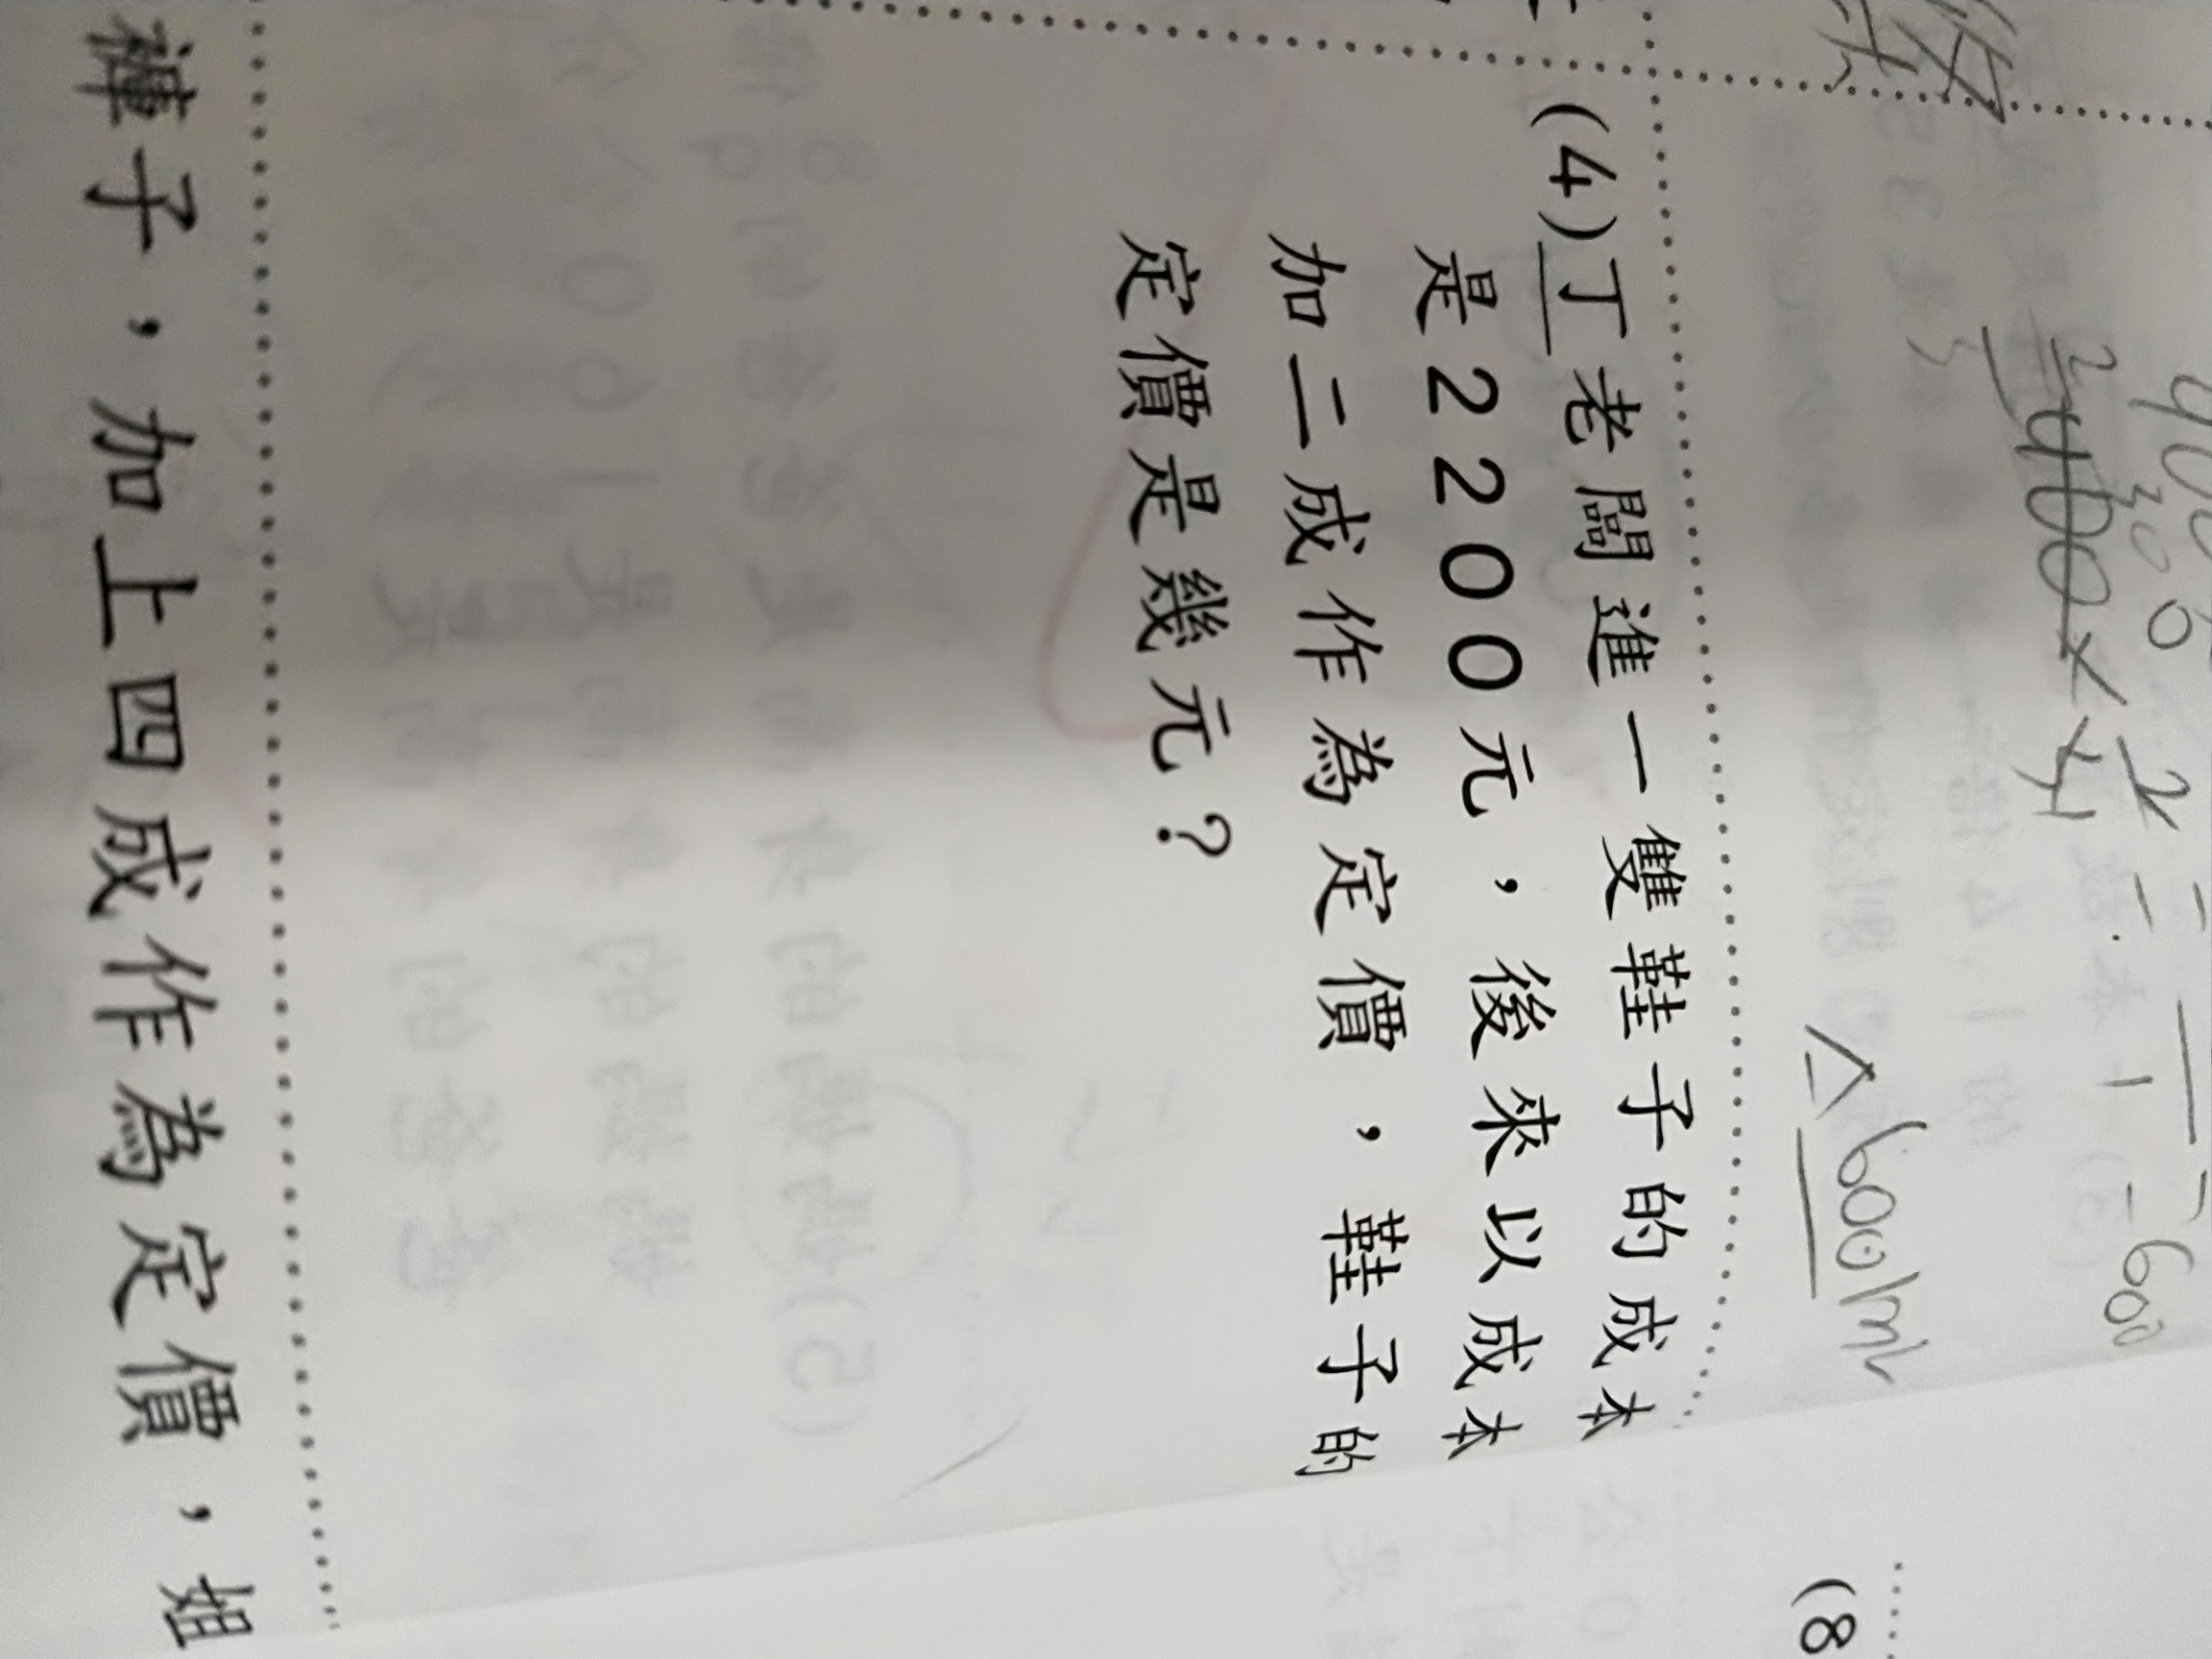 (4)丁老闆進一雙鞋子的成本
是2200元，後來以成本
加二成作為定價，鞋子的
定價是幾元？
褲子，加上四成作為定價，姐
(8
600
600ml